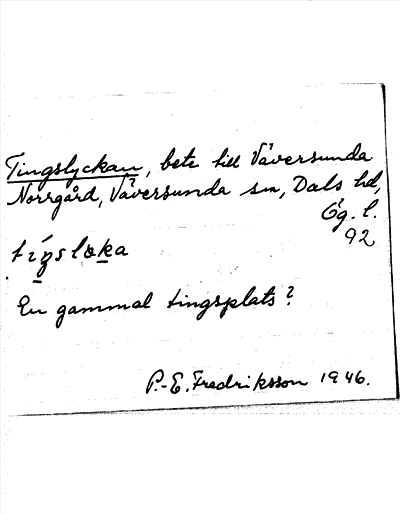 Tingslyckan, bete till Väversunda
Norrgård, Väversunda sn, Dals hd,
Ög. l.
92
tíŋsloka
En gammal tingsplats?
P.-E. Fredriksson 1946.